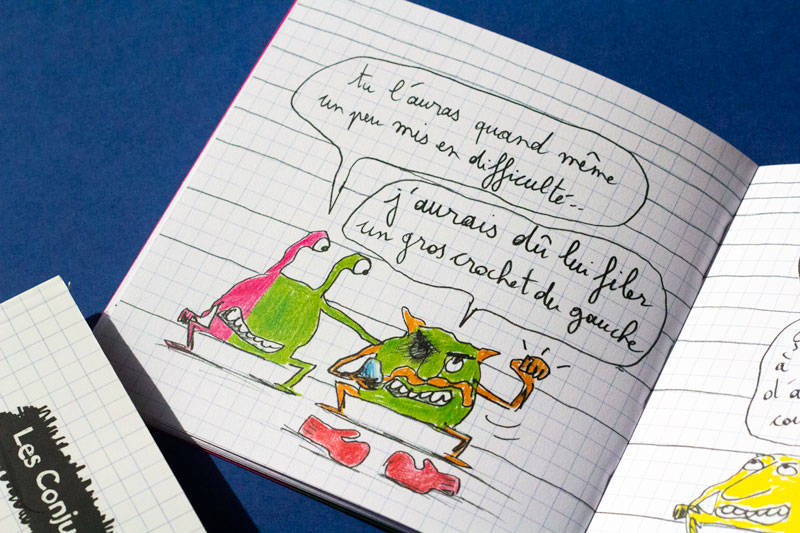 tu l'auras quand même
un peu mis en difficulté...
j'aurais dû lui filer
un gros crochet du gauche
Les Conju
à
d'a
cou